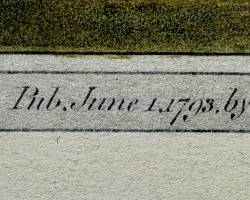 Pub. June 1. 1793. by